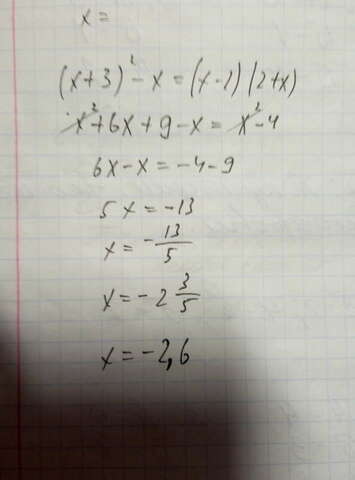 x =
(x+3)² - x = (x-2)(2+x)
x² + 6x + 9 - x = x² - 4
6x - x = -4 - 9
5x = -13
x = -13/5
x = -2 3/5
x = -2,6